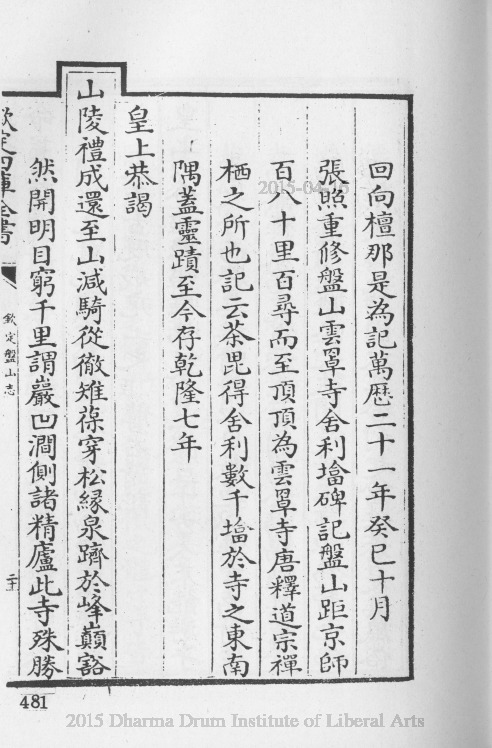 回向檀那是為記萬歷二十一年癸巳十月
張照重修盤山雲罩寺舍利塔碑記盤山距京師
百八十里百尋而至頂頂為雲罩寺唐釋道宗禪
栖之所也記云荼毘得舍利數千塔於寺之東南
隅蓋靈蹟至今存乾隆七年
皇上恭謁
山陵禮成還至山減騎從徹雉葆穿松緣泉躋於峰巔豁
然開明目窮千里謂巖凹澗側諸精廬此寺殊勝
欽定四庫全書
欽定盤山志
481
2015 Dharma Drum Institute of Liberal Arts